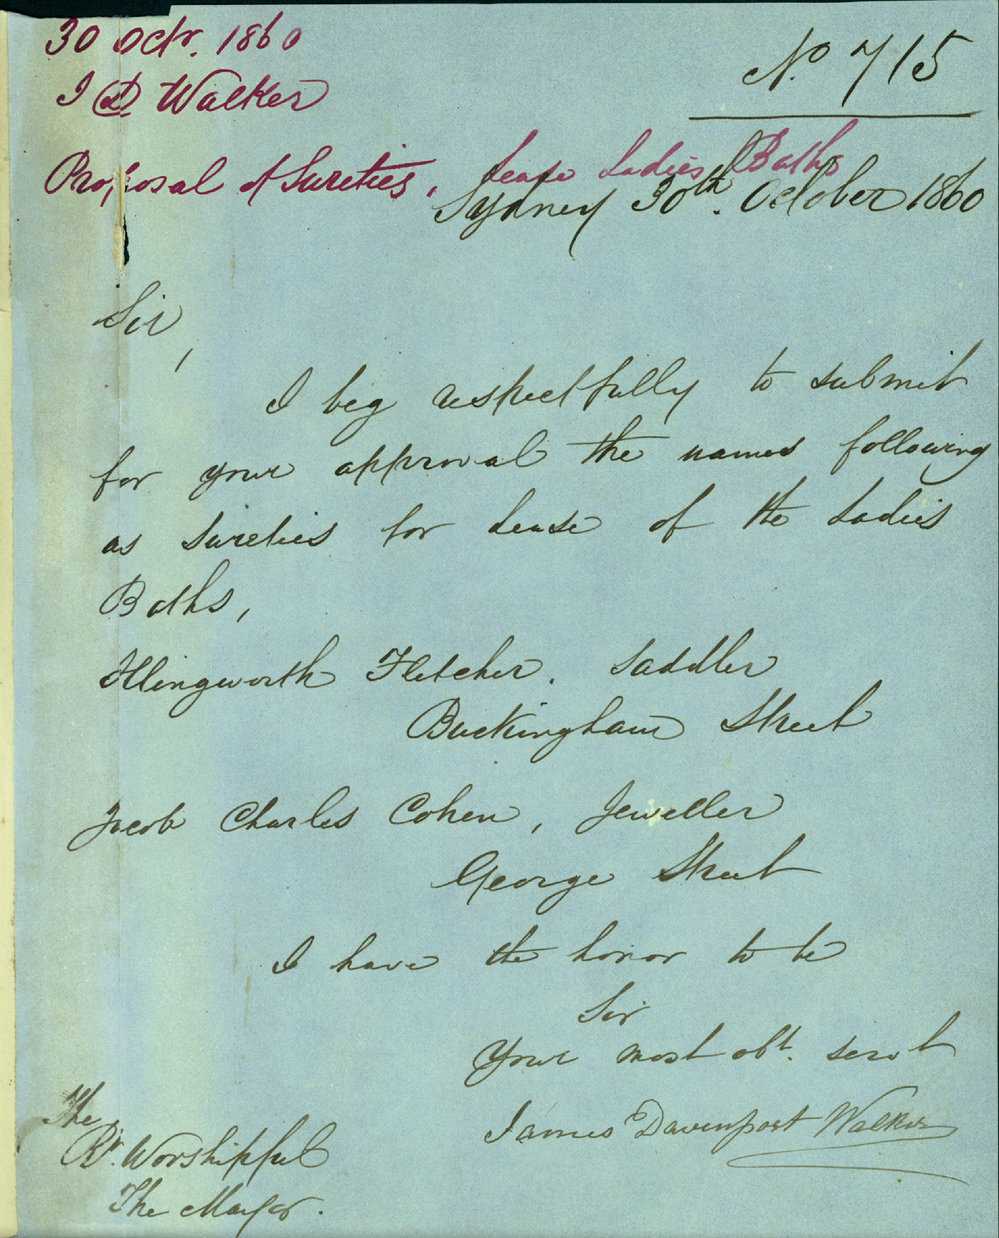 30 Octr. 1860
J D Walker
Proposal of Sureties, Lease Ladies Baths
No. 715
Sydney 30th. October 1860
Sir,
I beg respectfully to submit
for your approval the names following
as sureties for Lease of the Ladies
Baths,
Illingworth Fletcher. Saddler
Buckingham Street
Jacob Charles Cohen, Jeweller
George Street
I have the honor to be
Sir
Your most obt. servt
James Davenport Walker
The
Rt. Worshipful
The Mayor.